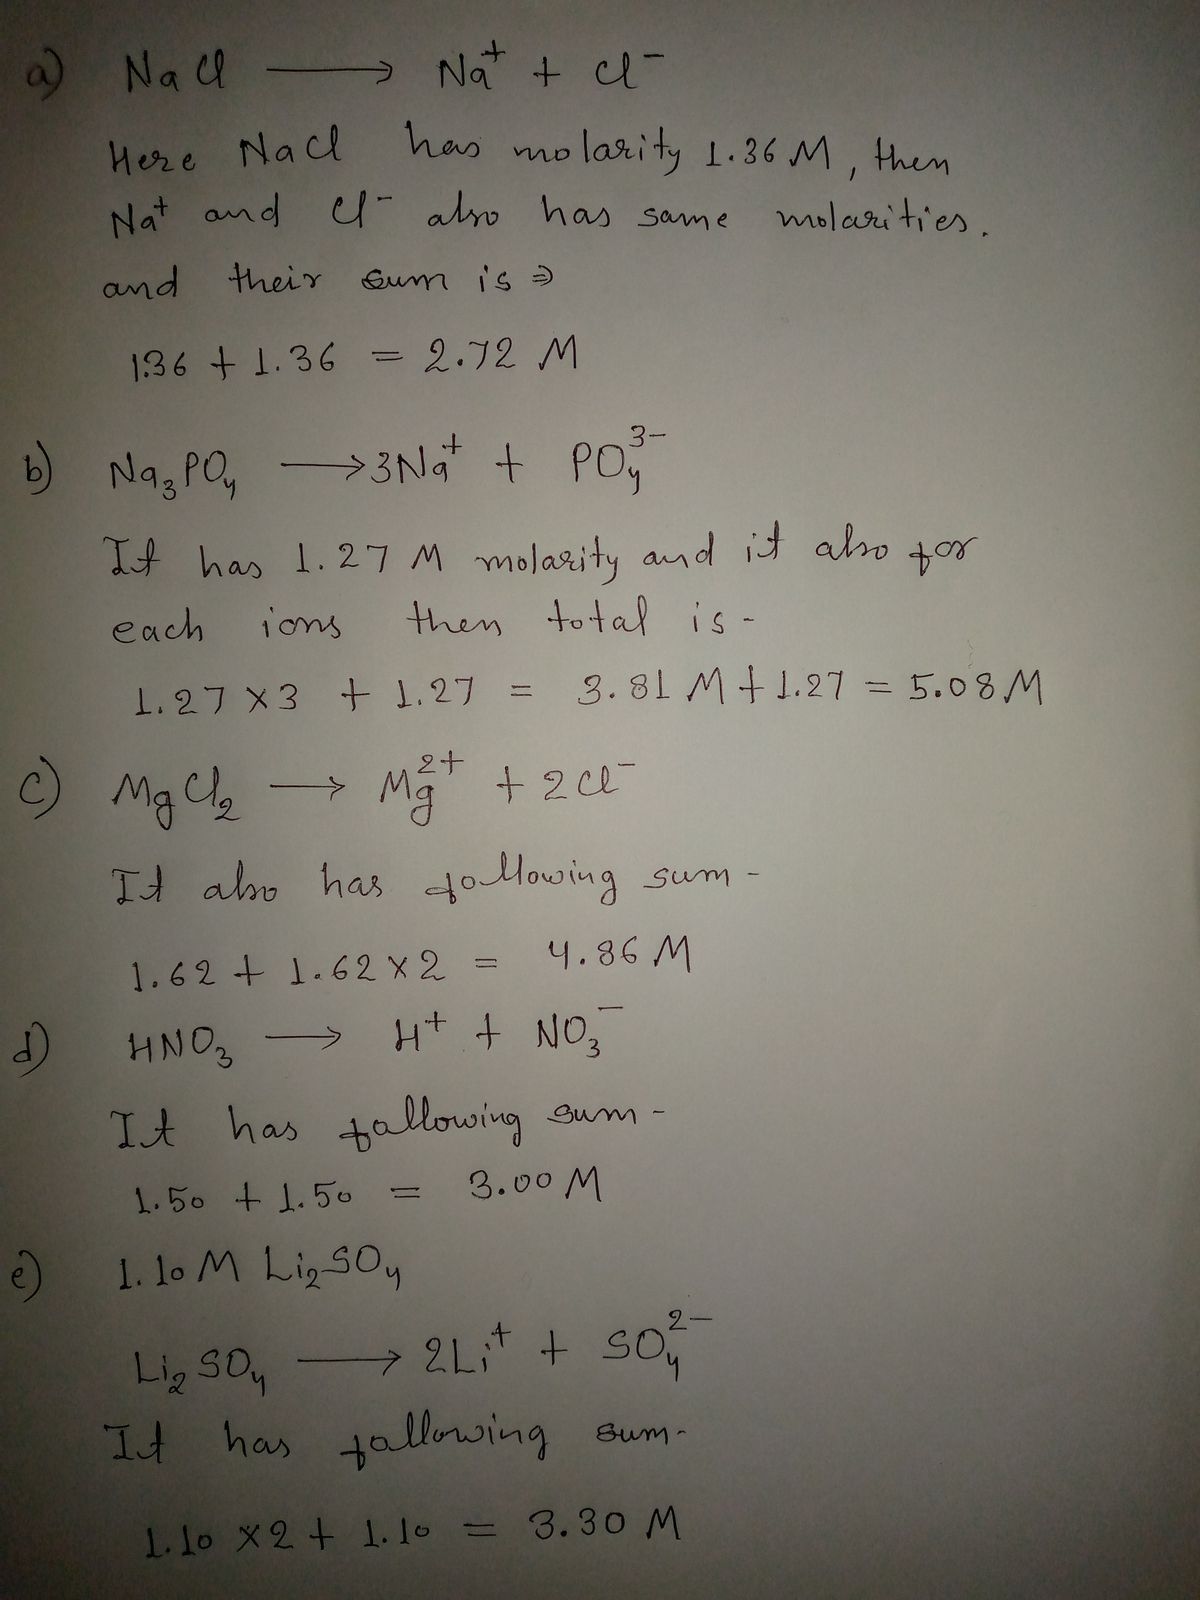 a) NaCl ⟶ Na⁺ + Cl⁻
Here NaCl has molarity 1.36 M, then
Na⁺ and Cl⁻ also has same molarities.
and their sum is ⇒
1.36 + 1.36 = 2.72 M
b) Na₃PO₄ ⟶ 3Na⁺ + PO₄³⁻
It has 1.27 M molarity and it also for
each ions then total is -
1.27 × 3 + 1.27 = 3.81 M + 1.27 = 5.08 M
c) MgCl₂ ⟶ Mg²⁺ + 2Cl⁻
It also has following sum -
1.62 + 1.62 × 2 = 4.86 M
d) HNO₃ ⟶ H⁺ + NO₃⁻
It has following sum -
1.50 + 1.50 = 3.00 M
e) 1.10 M Li₂SO₄
Li₂SO₄ ⟶ 2Li⁺ + SO₄²⁻
It has following sum -
1.10 × 2 + 1.10 = 3.30 M